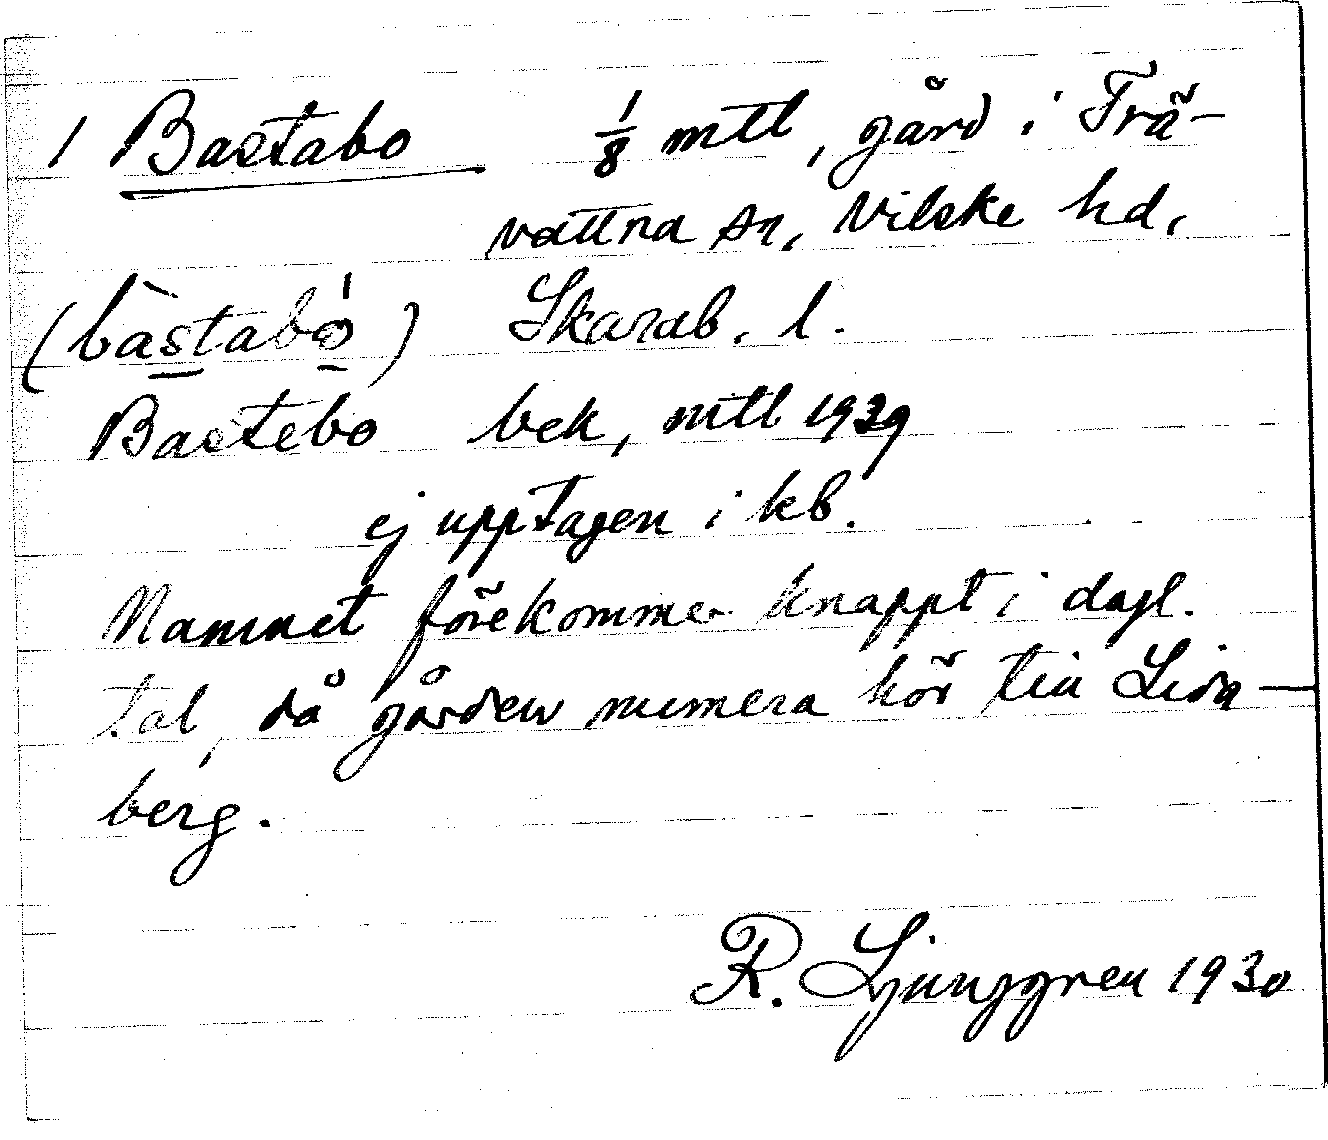 1 Bastabo 1/8 mtl, gård i Trä-
vattna sn, Vilske hd,
(bàstabó) Skarab. l.
Bastebo bek, mtl 1929
ej upptagen i kb.
Namnet förekommer knappt i dagl.
tal, då gården numera hör till Lida-
berg.
R. Ljunggren 1930